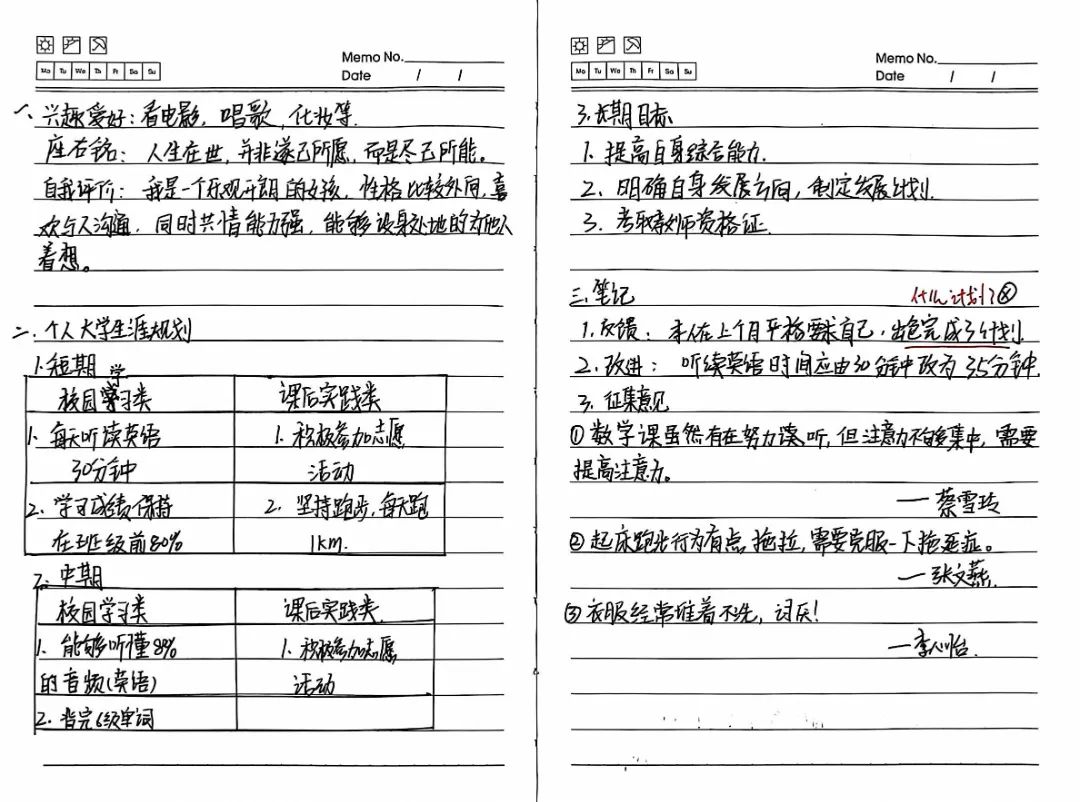 Memo No.
Mo Tu We Th Fr Sa Su
Date / /
一、兴趣爱好：看电影，唱歌，化妆等.
座右铭： 人生在世，并非遂己所愿，而是尽己所能。
自我评价：我是一个乐观开朗的女孩，性格比较外向，喜
欢与人沟通，同时共情能力强，能够设身处地的为他人
着想。
二、个人大学生涯规划
1.短期
学
校园学习类 课后实践类
1、每天听读英语 1、积极参加志愿
30分钟 活动
2、学习成绩保持 2、坚持跑步，每天跑
在班级前80% 1km.
2、中期
校园学习类 课后实践类
1、能够听懂80% 1、积极参加志愿
的音频(英语) 活动
2、背完6级单词
Memo No.
Mo Tu We Th Fr Sa Su
Date / /
3.长期目标
1、提高自身综合能力.
2、明确自身发展方向，制定发展计划.
3、考取教师资格证.
三.笔记 什么计划？
1.反馈：本人在上个月严格要求自己，出色完成了计划.
2.改进： 听读英语时间应由30分钟改为35分钟.
3.征集意见
①数学课虽然有在努力读、听，但注意力不够集中，需要
提高注意力。
—蔡雪玲
②起床跑步行为有点拖拉，需要克服一下拖延症。
—张文燕.
③衣服经常堆着不洗，讨厌！
—李心怡.